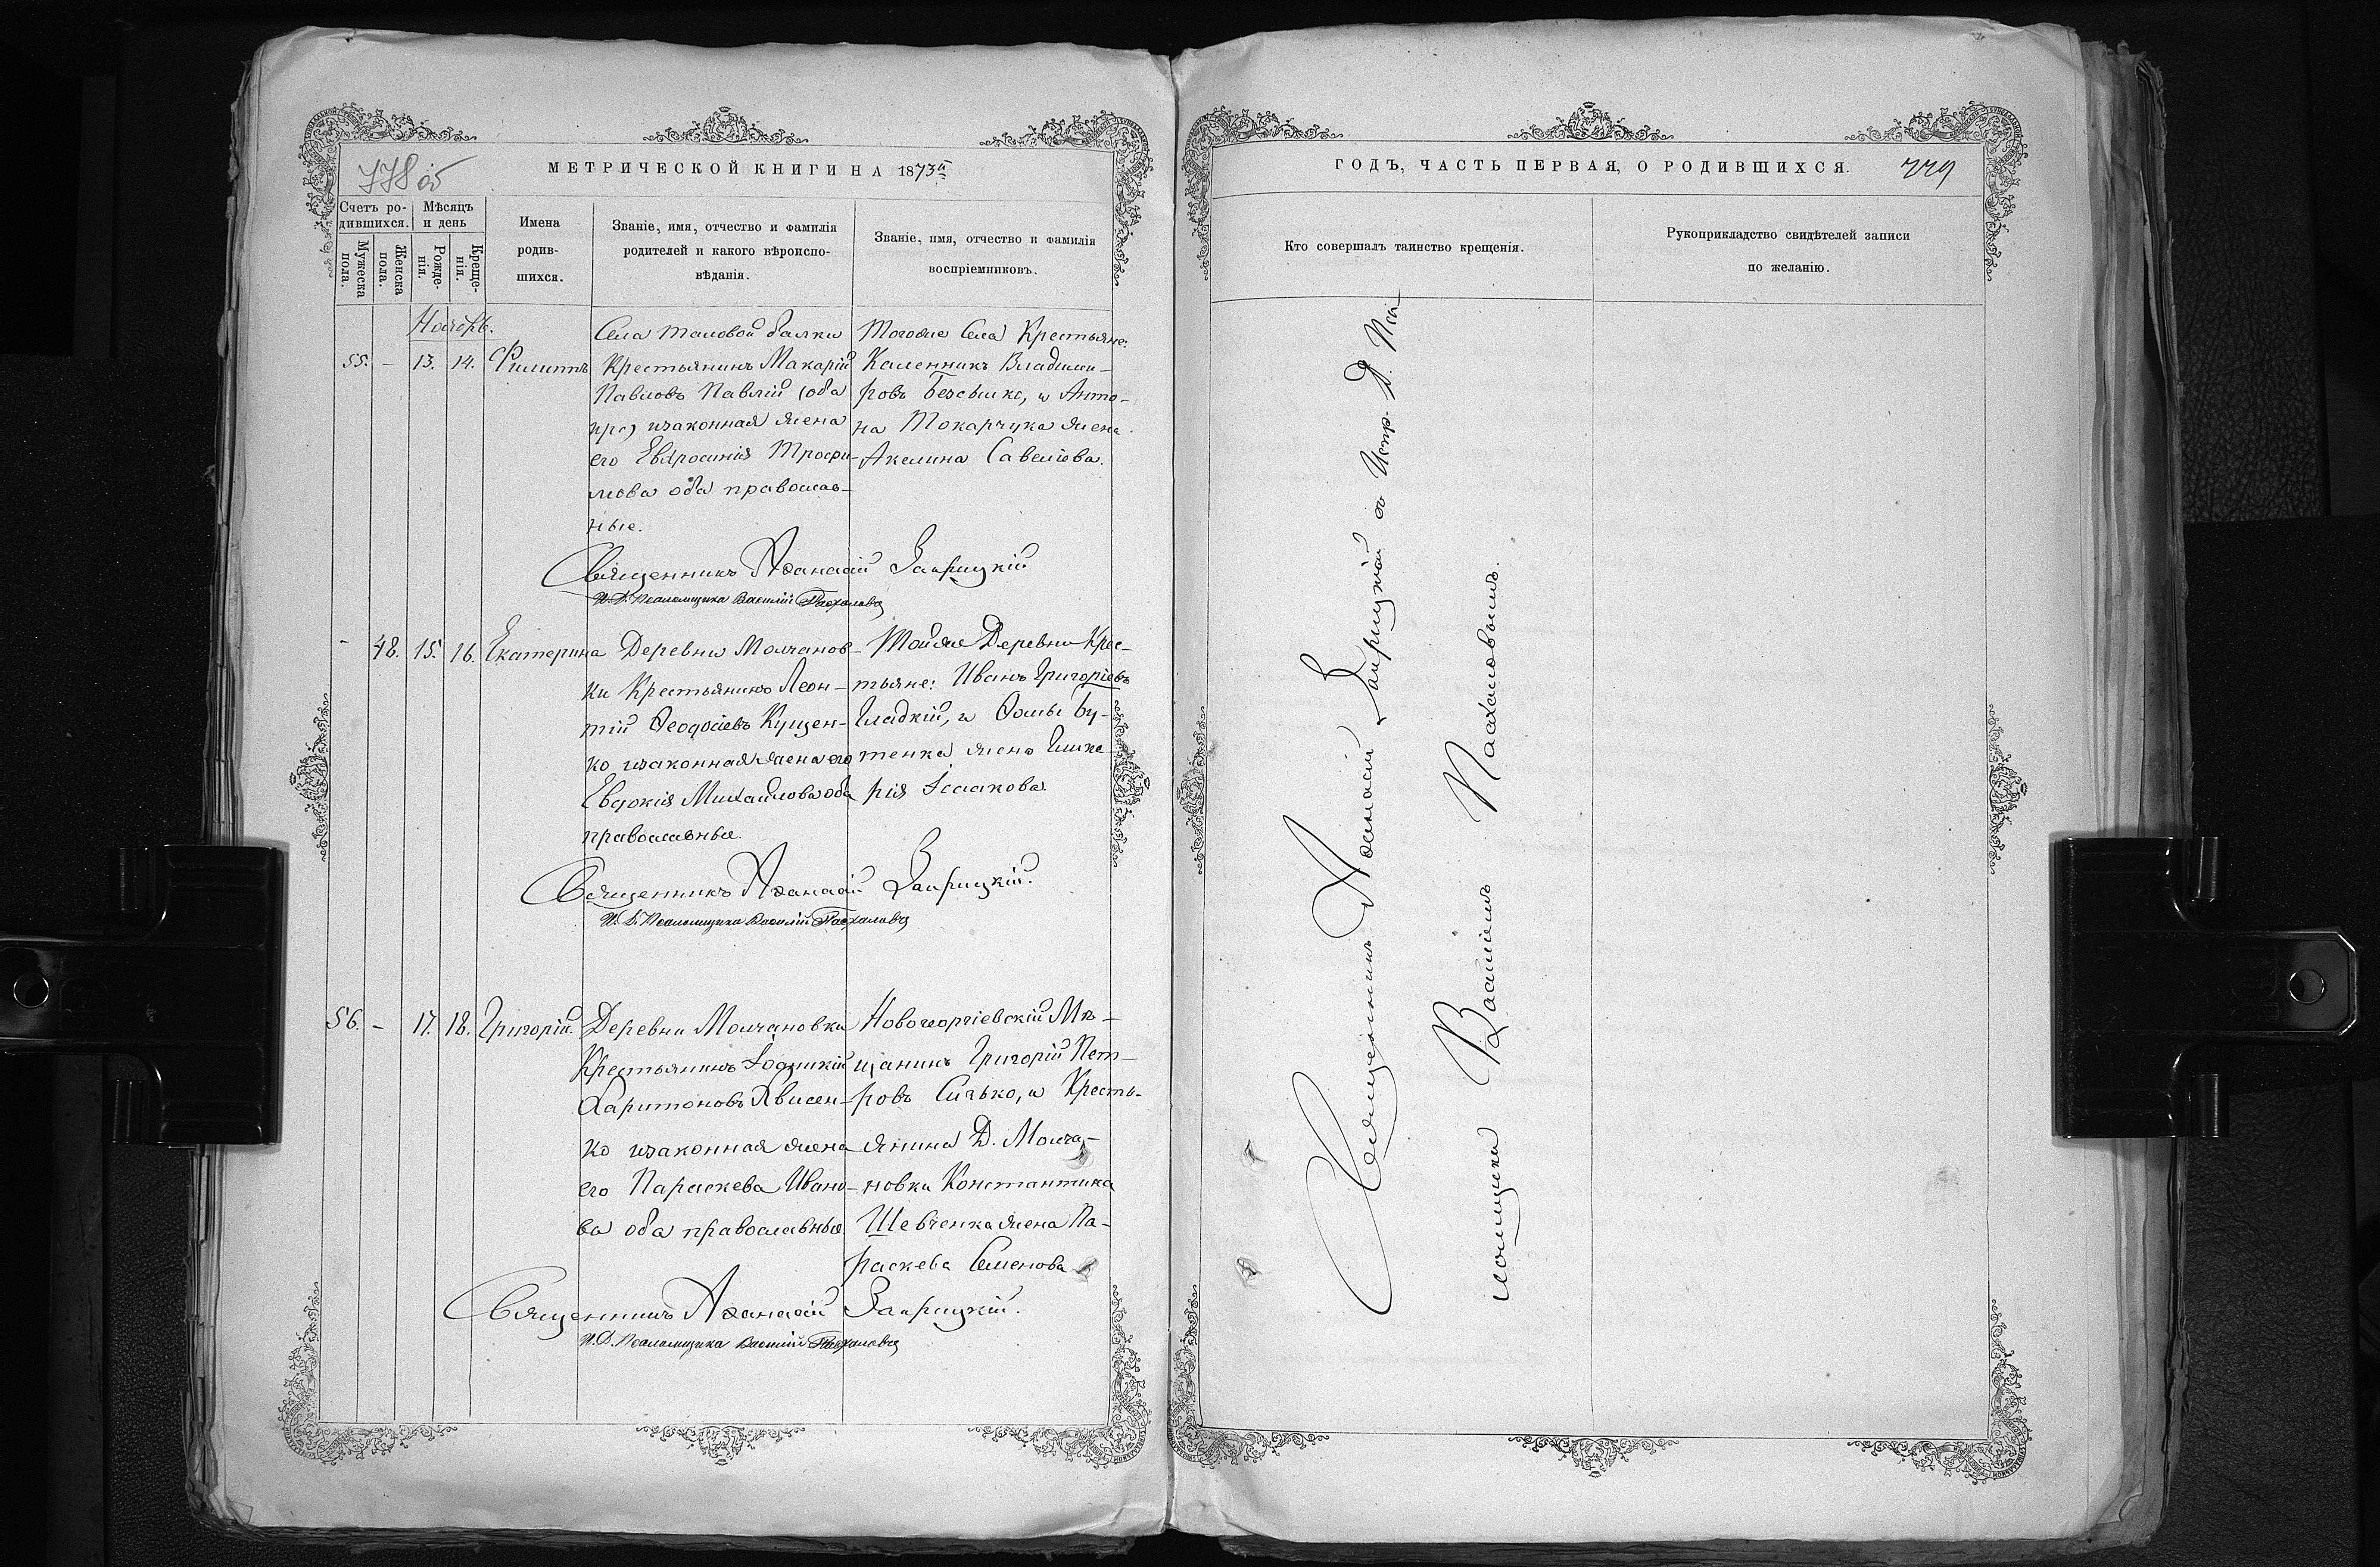 778 об
МЕТРИЧЕСКОЙ КНИГИ НА 1873й
Счетъ ро-
дившихся.
Мѣсяцъ
и день
Мужеска
пола.
Женска
пола.
Рожде-
нія.
Креще-
нія.
Имена
родив-
шихся.
Званіе, имя, отчество и фамилія
родителей и какого вѣроиспо-
вѣданія.
Званіе, имя, отчество и фамилія
воспріемниковъ.
Ноябрь.
55. - 13. 14. Филиппъ
Села Таловой балки
Крестьянинъ Макарій
Павловъ Павлій (оба
изаконная жена
его Евфросинія Трофи-
мова оба православ-
ные.
Тогоже Села Крестьяне:
Каленникъ Владими-
ровъ Безсыпко, и Анто-
на Токарчука жена
Акелина Савеліева.
Священникъ Аѳанасій Заирицкій
И. Д. Псаломщика Василій Пасхаловъ
- 48. 15. 16. Екатерина
Деревни Молчанов-
ки Крестьянинъ Леон-
тій Ѳеодосіевъ Куцен-
ко изаконная жена его
Евдокія Михайлова оба
православные.
Тойже Деревни Крес-
тьяне: Иванъ Григоріевъ
Гладкій, и Ѳомы Бу-
тенка жена Глике-
рія Ісаакова
Священникъ Аѳанасій Заирицкій.
И. Д. Псаломщика Василій Пасхаловъ
56. - 17. 18. Григорій.
Деревни Молчановки
Крестьянинъ Іоанникій
Харитоновъ Явисен-
ко изаконная жена
его Параскева Ивано-
ва оба православные.
Новогеоргіевскій Мѣ-
щанинъ Григорій Пет-
ровъ Сичько, и Кресть-
янина Д. Молча-
новки Константина
Шевченка жена Па-
раскева Семенова
Священникъ Аѳанасій Заирицкій.
И. Д. Псаломщика Василій Пасхаловъ
ГОДЪ, ЧАСТЬ ПЕРВАЯ, О РОДИВШИХСЯ.
779
Кто совершалъ таинство крещенія.
Рукоприкладство свидѣтелей записи
по желанію.
Священникъ Аѳанасій Заирицкій съ Испр. Д. Пса
ломщика Василіемъ Пасхаловымъ.